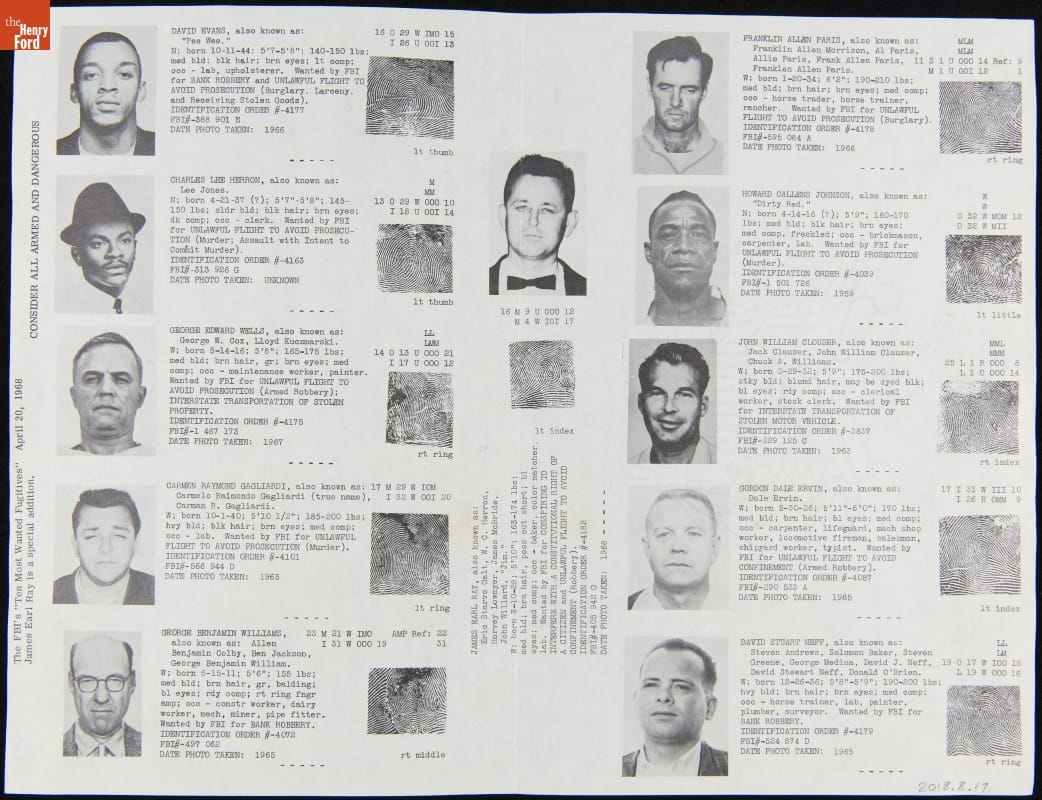 the
Henry
Ford
CONSIDER ALL ARMED AND DANGEROUS
The FBI's "Ten Most Wanted Fugitives" April 20, 1968
James Earl Ray is a special addition.
DAVID EVANS, also known as:
"Pee Wee."
N: born 10-11-44: 5'7-5'8": 140-150 lbs:
med bld; blk hair; brn eyes; lt comp;
occ - lab, upholsterer. Wanted by FBI
for BANK ROBBERY and UNLAWFUL FLIGHT TO
AVOID PROSECUTION (Burglary, Larceny,
and Receiving Stolen Goods).
IDENTIFICATION ORDER #-4177
FBI#-388 901 E
DATE PHOTO TAKEN: 1966
16 O 29 W IMO 15
I 26 U OOI 13
lt thumb
CHARLES LEE HERRON, also known as:
Lee Jones.
N; born 4-21-37 (?); 5'7"-5'8"; 145-
150 lbs; sldr bld; blk hair; brn eyes;
dk comp; occ - clerk. Wanted by FBI
for UNLAWFUL FLIGHT TO AVOID PROSECU-
TION (Murder; Assault with Intent to
Commit Murder).
IDENTIFICATION ORDER #-4163
FBI#-313 926 G
DATE PHOTO TAKEN: UNKNOWN
M
MM
13 O 29 W OOO 10
I 18 U OOI 14
lt thumb
GEORGE EDWARD WELLS, also known as:
George W. Cox, Lloyd Kuczmarski.
W; born 5-14-16; 5'8"; 165-175 lbs;
med bld; brn hair, gr; brn eyes; med
comp; occ - maintenance worker, painter.
Wanted by FBI for UNLAWFUL FLIGHT TO
AVOID PROSECUTION (Armed Robbery);
INTERSTATE TRANSPORTATION OF STOLEN
PROPERTY.
IDENTIFICATION ORDER #-4175
FBI#-1 467 173
DATE PHOTO TAKEN: 1967
LL
LMM
14 O 13 U OOO 21
I 17 U OOO 12
rt ring
CARMEN RAYMOND GAGLIARDI, also known as:
Carmelo Raimondo Gagliardi (true name),
Carman R. Gagliardi.
W; born 10-1-40; 5'10 1/2"; 185-200 lbs;
hvy bld; blk hair; brn eyes; med comp;
occ - lab. Wanted by FBI for UNLAWFUL
FLIGHT TO AVOID PROSECUTION (Murder).
IDENTIFICATION ORDER #-4101
FBI#-566 944 D
DATE PHOTO TAKEN: 1965
17 M 29 W IOM
I 32 W OOI 20
lt ring
GEORGE BENJAMIN WILLIAMS,
also known as: Allen
Benjamin Colby, Ben Jackson,
George Benjamin William.
W; born 6-15-11; 5'6"; 155 lbs;
med bld; brn hair, gr, balding;
bl eyes; rdy comp; rt ring fngr
amp; occ - constr worker, dairy
worker, mech, miner, pipe fitter.
Wanted by FBI for BANK ROBBERY.
IDENTIFICATION ORDER #-4072
FBI#-497 062
DATE PHOTO TAKEN: 1965
23 M 21 W IMO AMP Ref: 22
I 31 W OOO 19 31
rt middle
16 M 9 U OOO 12
M 4 W IOI 17
lt index
JAMES EARL RAY, also known as:
Eric Starvo Galt, W. C. Herron,
Harvey Lowmyer, James McBride,
John Willard, "Jim."
W; born 3-10-28; 5'10"; 163-174 lbs;
med bld; brn hair, poss cut short; bl
eyes; med comp; occ - baker, color matcher,
lab. Wanted by FBI for CONSPIRING TO
INTERFERE WITH A CONSTITUTIONAL RIGHT OF
A CITIZEN and UNLAWFUL FLIGHT TO AVOID
CONFINEMENT (Robbery).
IDENTIFICATION ORDER #-4182
FBI#-405 942 G
DATE PHOTO TAKEN: 1968
FRANKLIN ALLEN PARIS, also known as:
Franklin Allen Morrison, Al Paris,
Allie Paris, Frank Allen Paris,
Franklin Allen Peris.
W; born 1-20-34; 6'2"; 190-210 lbs;
med bld; brn hair; brn eyes; med comp;
occ - horse trader, horse trainer,
rancher. Wanted by FBI for UNLAWFUL
FLIGHT TO AVOID PROSECUTION (Burglary).
IDENTIFICATION ORDER #-4178
FBI#-595 084 A
DATE PHOTO TAKEN: 1966
MLM
11 S 1 U OOO 14 Ref: 9
M 1 U OOI 12 1
rt ring
HOWARD CALLENS JOHNSON, also known as:
"Dirty Red."
N; born 4-14-16 (?); 5'9"; 160-170
lbs; med bld; blk hair; brn eyes;
med comp, freckled; occ - brickmason,
carpenter, lab. Wanted by FBI for
UNLAWFUL FLIGHT TO AVOID PROSECUTION
(Murder).
IDENTIFICATION ORDER #-4039
FBI#-1 501 726
DATE PHOTO TAKEN: 1959
W
W
O 32 W MOM 12
O 32 W MII
lt little
JOHN WILLIAM CLOUSER, also known as:
Jack Clauser, John William Clauser,
Chuck A. Williams.
W; born 3-29-32; 5'9"; 175-200 lbs;
stky bld; blond hair, may be dyed blk;
bl eyes; rdy comp; occ - clerical
worker, stock clerk. Wanted by FBI
for INTERSTATE TRANSPORTATION OF
STOLEN MOTOR VEHICLE.
IDENTIFICATION ORDER #-3837
FBI#-229 125 C
DATE PHOTO TAKEN: 1963
MML
MMM
25 L 1 R OOO 8
L 1 U OOO 14
rt index
GORDON DALE ERVIN, also known as:
Dale Ervin.
W; born 5-30-26; 5'11"-6'0"; 170 lbs;
med bld; brn hair; bl eyes; med comp;
occ - carpenter, lifeguard, mach shop
worker, locomotive fireman, salesman,
shipyard worker, typist. Wanted by
FBI for UNLAWFUL FLIGHT TO AVOID
CONFINEMENT (Armed Robbery).
IDENTIFICATION ORDER #-4087
FBI#-290 533 A
DATE PHOTO TAKEN: 1965
17 I 31 W III 10
I 26 R OMM 9
lt index
DAVID STUART NEFF, also known as:
Steven Andrews, Solomon Baker, Steven
Greene, George Medina, David J. Neff,
David Stewart Neff, Donald O'Brien.
W; born 12-26-36; 5'8"-5'9"; 190-200 lbs;
hvy bld; brn hair; brn eyes; med comp;
occ - horse trainer, lab, painter,
plumber, surveyor. Wanted by FBI for
BANK ROBBERY.
IDENTIFICATION ORDER #-4179
FBI#-524 874 D
DATE PHOTO TAKEN: 1965
LL
LM
19 O 17 W IOO 18
L 19 W OOO 16
rt ring
2018.8.17